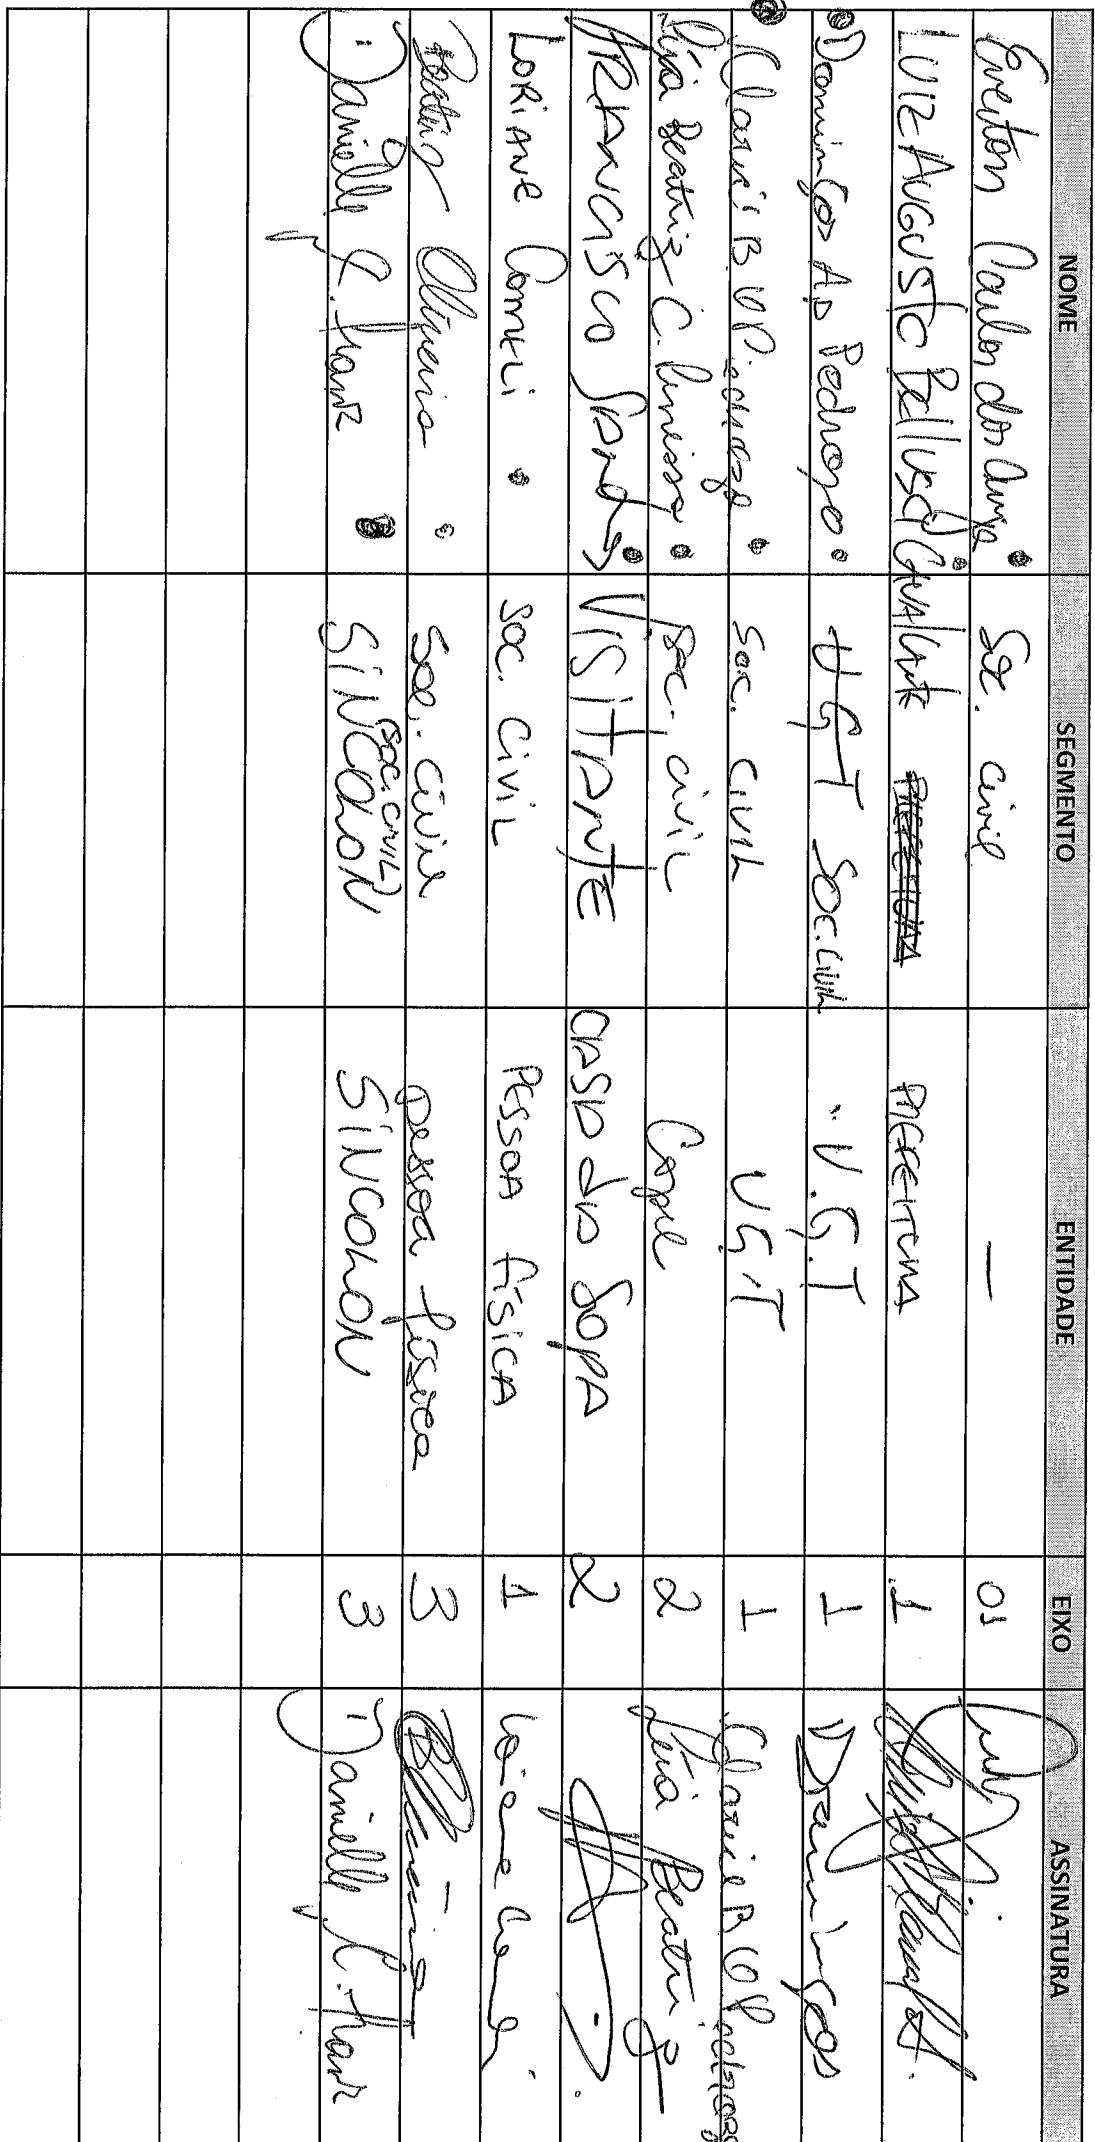 NOME SEGMENTO ENTIDADE EIXO ASSINATURA
Everton Carlos dos Anjos Soc. civil — 01
LUIZ AUGUSTO Bellusci CAVALCANTE PREFEITURA 1
Domingos AP Pedrozo UGT SOC. CIVIL U.G.T 1 Domingos
Claris B. V. Soc. CIVIL UGT 1
Beatriz C. soc. civil Copel 2 Beatriz
FRANCISCO Santos VISITANTE CASA da SOPA 2
LORIANE Comeli SOC. CIVIL PESSOA FÍSICA 1
Beatriz Oliveira Soc. civil pessoa física 3
Danielly C. Frank SINCOLON (soc. civil) SINCOLON 3 Danielly C. Frank